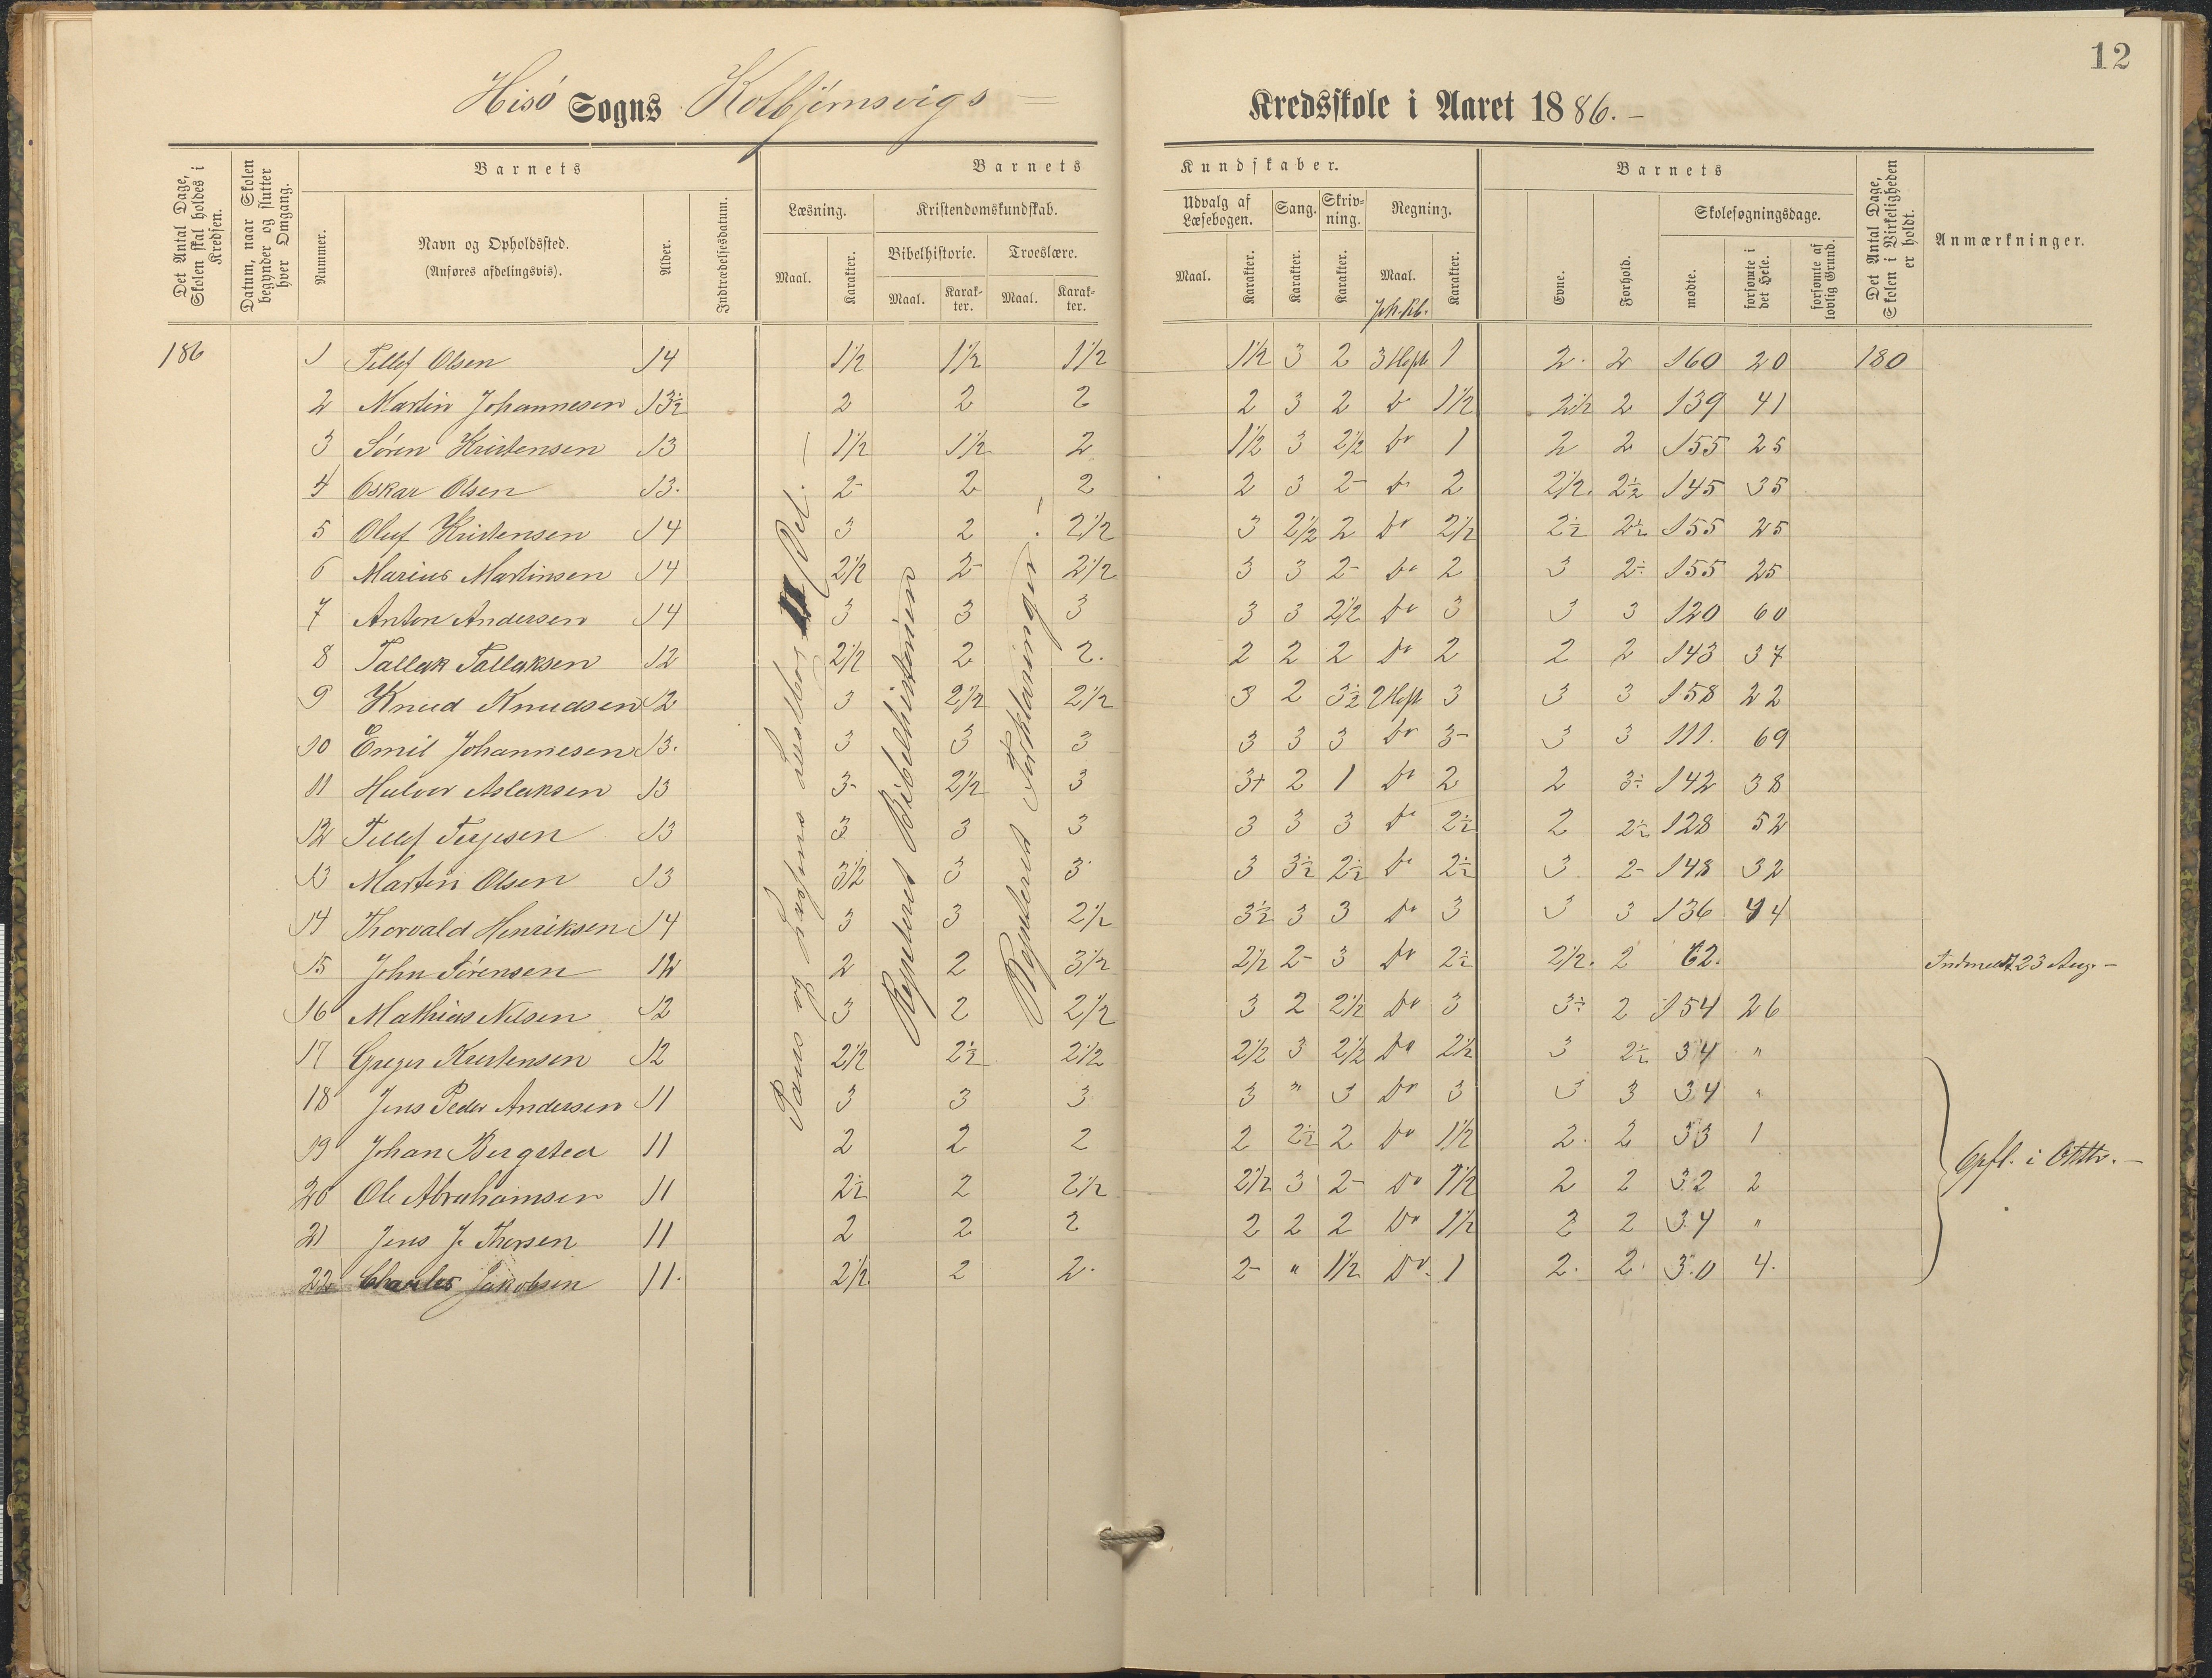 12
Hisö Sogns Kolbjørnsvigs – Kredsskole i Aaret 1886. –
Det Antal Dage, Skolen skal holdes i Kredsen.
Datum, naar Skolen begynder og slutter hver Omgang.
Barnets
Nummer.
Navn og Opholdssted.
(Anføres afdelingsvis).
Alder.
Indtrædelsesdatum.
Barnets Kundskaber.
Læsning.
Maal.
Karakter.
Kristendomskundskab.
Bibelhistorie.
Maal.
Karak-ter.
Troeslære.
Maal.
Karak-ter.
Udvalg af Læsebogen.
Maal.
Karakter.
Sang.
Karakter.
Skriv-ning.
Karakter.
Regning.
Maal.
Karakter.
Barnets
Evne.
Forhold.
Skolesøgningsdage.
mødte.
forsømte i det Hele.
forsømte af lovlig Grund.
Det Antal Dage, Skolen i Virkeligheden er holdt.
Anmærkninger.
186 1 Tellef Olsen 14 1½ 1½ 1½ 1½ 3 2 3 Heft 1 2. 2 160 20 180
2 Martin Johannesen 13½ 2 2 2 2 3 2 Do 1½ 2½ 2 139 41
3 Søren Kristensen 13 1½ 1½ 2 1½ 3 2½ Do 1 2 2 155 25
4 Oskar Olsen 13. 2- 2 2 2 3 2- Do 2 2½. 2½ 145 35
5 Oluf Kristensen 14 3 2 2½ 3 2½ 2 Do 2½ 2½ 2½ 155 25
6 Marius Martinsen 14 2½ 2- 2½ 3 3 2- Do 2 3 2÷ 155 25
7 Anton Andersen 14 3 3 3 3 3 2½ Do 3 3 3 120 60
8 Tallak Tallaksen 12 2½ 2 2. 2 2 2 Do 2 2 2 143 37
9 Knud Knudsen 12 3 2½ 2½ 3 2 3½ 2 Heft 3 3 3 158 22
10 Emil Johannesen 13. 3 3 3 3 3 3 Do 3- 3 3 111. 69
11 Halvor Aslaksen 13 3- 2½ 3 3+ 2 1 Do 2 2 3÷ 142 38
12 Tellef Terjesen 13 3 3 3 3 3 3 Do 2½ 2 2½ 128 52
13 Martin Olsen 13 3½ 3 3 3 3½ 2½ Do 2½ 3 2- 148 32
14 Thorvald Henriksen 14 3 3 2½ 3½ 3 3 Do 3 3 3 136 44
15 John Sørensen 12 2 2 3½ 2½ 2- 3 Do 2½ 2½. 2 62. Indmeldt 23 Aug. –
16 Mathias Nilsen 12 3 2 2½ 3 2 2½ Do 3 3÷ 2 154 26
17 Greger Kristensen 12 2½ 2½ 2½ 2½ 3 2½ Do 2½ 3 2½ 34 "
18 Jens Peder Andersen 11 3 3 3 3 " 3 Do 3 3 3 34 "
19 Johan Bergsted 11 2 2 2 2 2½ 2 Do 1½ 2. 2 33 1
20 Ole Abrahamsen 11 2½ 2 2½ 2½ 3 2- Do 1½ 2 2 32 2
21 Jens J. Thorsen 11 2 2 2 2 2 2 Do 1½ 2 2 34 "
22 Charles Jakobsen 11. 2½ 2 2. 2- " 1½ Do. 1 2. 2. 30 4.
Opfl. i Oktbr. –
Paus og Lassens Læsebog II Del. –
Repeteret Bibelhistorien
Repeteret Forklaringen. –